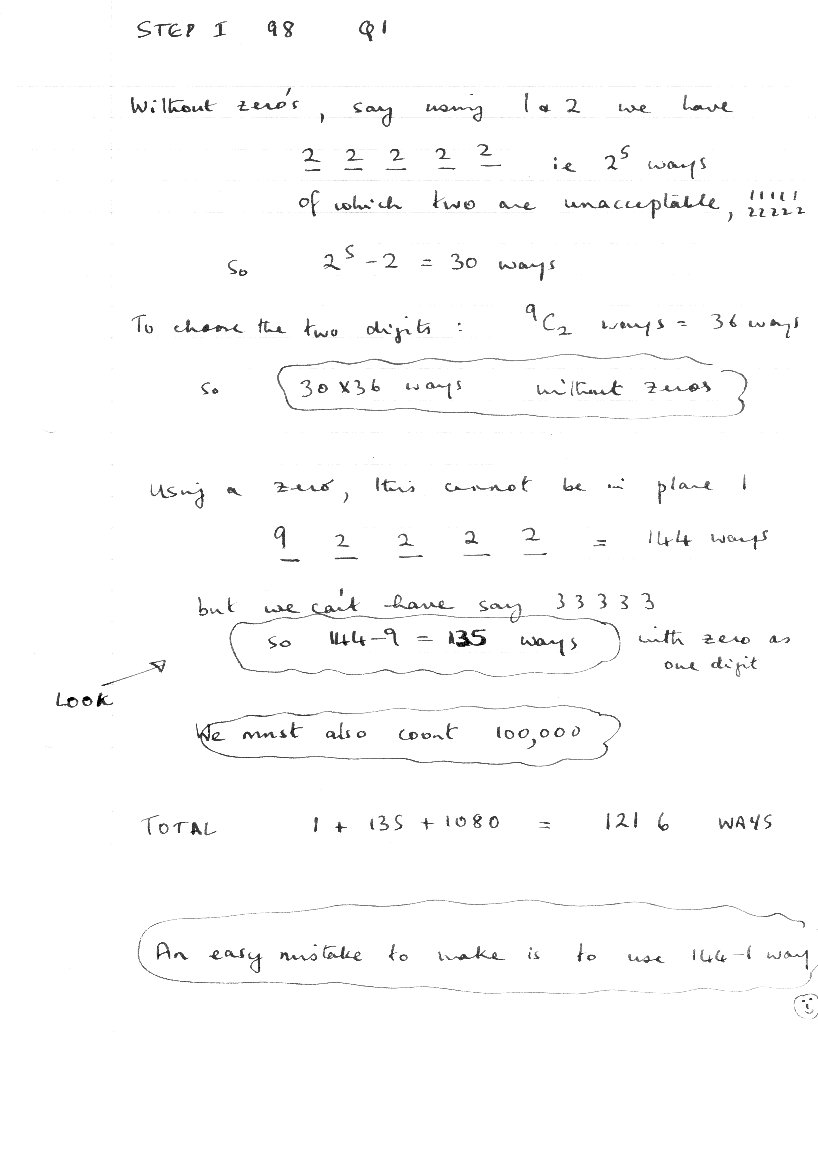 STEP I 98 Q1
Without zero's, say using 1 & 2 we have
2 2 2 2 2 ie 2⁵ ways
of which two are unacceptable, 11111
22222
So 2⁵ - 2 = 30 ways
To choose the two digits : ⁹C₂ ways = 36 ways
so 30 x 36 ways without zeros
Using a zero, this cannot be in place 1
9 2 2 2 2 = 144 ways
but we can't have say 3 3 3 3 3
so 144-9 = 135 ways with zero as
one digit
LOOK
We must also count 100,000
TOTAL 1 + 135 + 1080 = 1216 WAYS
An easy mistake to make is to use 144-1 way